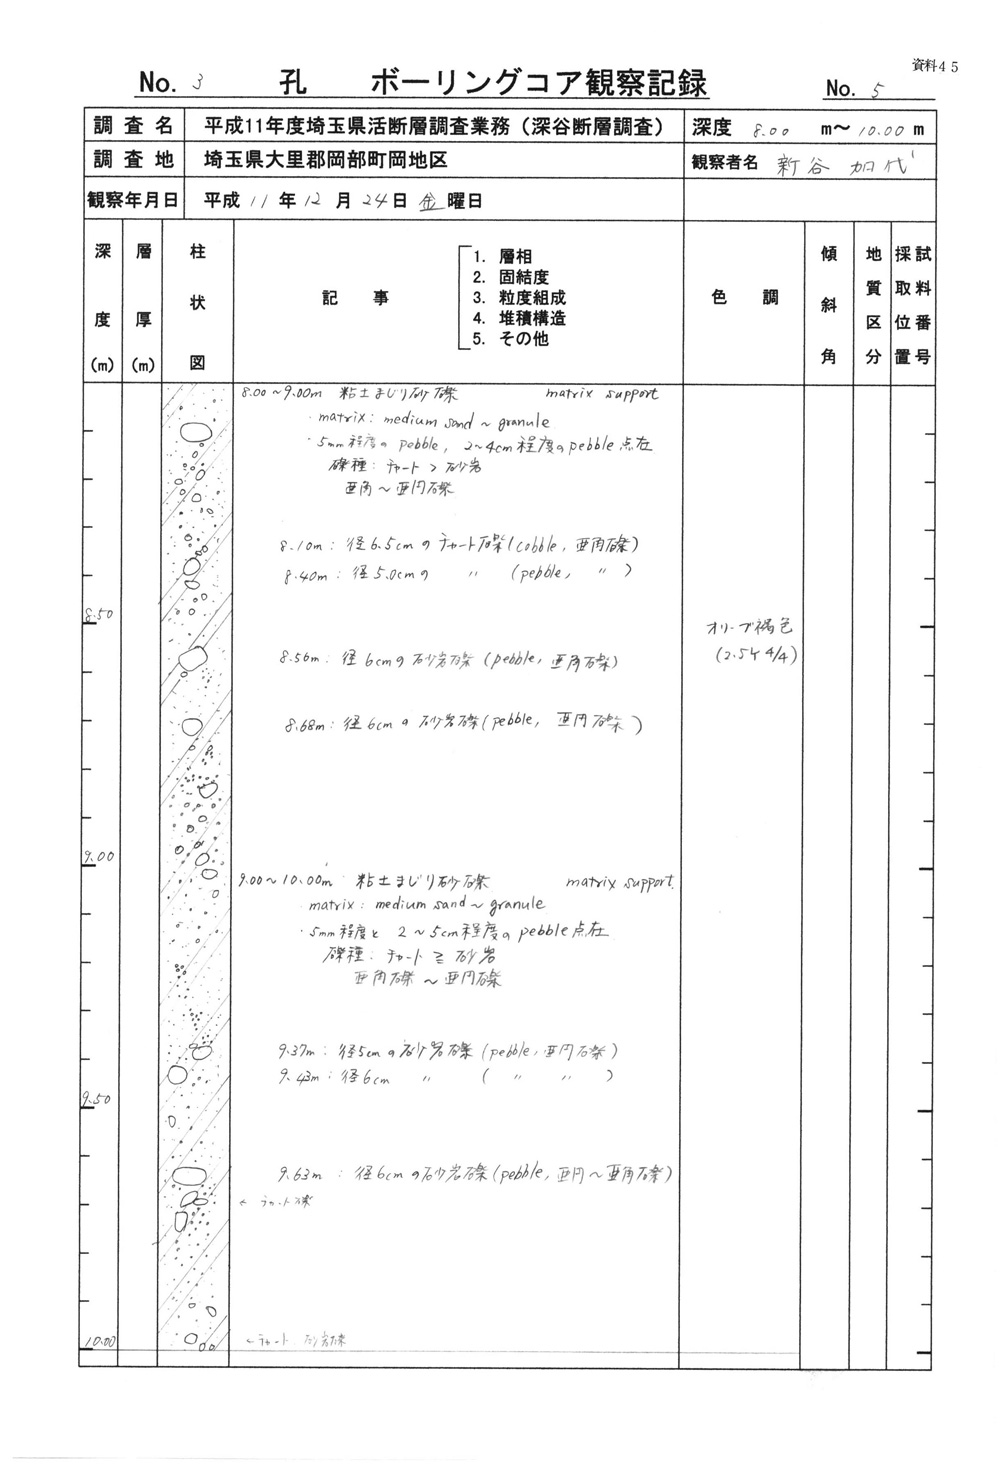 資料45
No. 3 孔 ボーリングコア観察記録 No. 5
調査名 平成11年度埼玉県活断層調査業務（深谷断層調査） 深度 8.00 m～10.00 m
調査地 埼玉県大里郡岡部町岡地区 観察者名 新谷 加代
観察年月日 平成 11 年 12 月 24 日 金 曜日
深度(m) 層厚(m) 柱状図 記事 色調 傾斜角 地質区分 採取位置 試料番号
1. 層相
2. 固結度
3. 粒度組成
4. 堆積構造
5. その他
8.00～9.00m 粘土まじり砂礫 matrix support
・matrix: medium sand～granule
・5mm程度の pebble, 2～4cm程度のpebble点在
礫種: チャート > 砂岩
亜角～亜円礫
8.10m: 径6.5cmの チャート礫(cobble, 亜角礫)
8.40m: 径5.0cmの 〃 (pebble, 〃 )
8.50
オリーブ褐色
(2.5Y 4/4)
8.56m: 径6cmの砂岩礫(pebble, 亜角礫)
8.68m: 径6cmの 砂岩礫(pebble, 亜円礫)
9.00
9.00～10.00m 粘土まじり砂礫 matrix support.
matrix: medium sand～granule
・5mm程度と 2～5cm程度のpebble点在
礫種: チャート ≧ 砂岩
亜角礫～亜円礫
9.37m: 径5cmの砂岩礫(pebble, 亜円礫)
9.43m: 径6cm 〃 ( 〃 〃 )
9.50
9.63m: 径6cmの砂岩礫(pebble, 亜円～亜角礫)
← チャート礫
10.00 ←チャート 砂岩礫